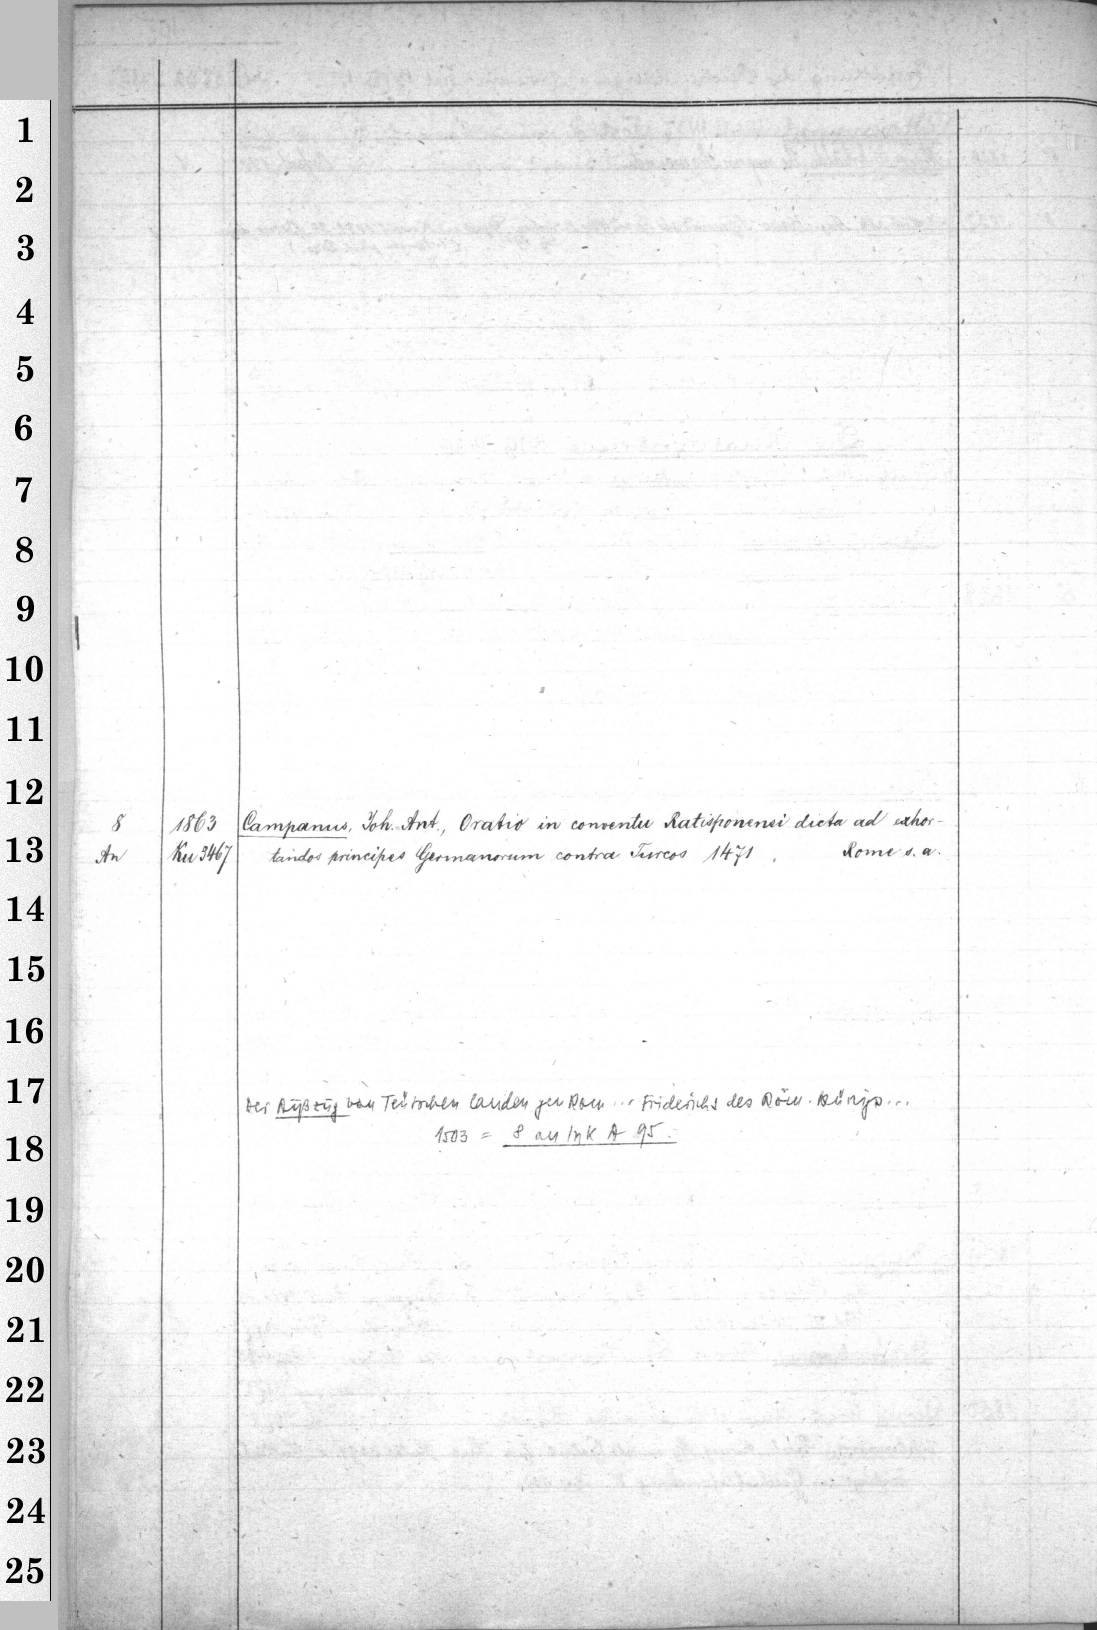 1
2
3
4
5
6
7
8
9
10
11
12
8 1863 Campanus, Joh. Ant., Oratio in conventu Ratisponensi dicta ad exhor-
13
An Ku 3467 tandos principes Germanorum contra Turcos 1471, Rome s. a.
14
15
16
17
Der Außzug von Teütschen landen gen Rom ... Friderichs des Röm. Künigs...
18
1503 = 8 an Ink A 95.
19
20
21
22
23
24
25